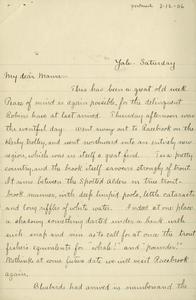 3-12-06
Yale - Saturday
My dear Mamma -
This has been a great old week.
Peace of mind is again possible, for the delinquent
Robins have at last arrived. Thursday afternoon was
the eventful day. Went away out to Racebrook on the
Derby trolley, and went northward into an entirely new
region, which was in itself a great find. It is a pretty
country, and the brook itself savors strongly of trout.
It runs between the Spotted Alders in true trout-
brook manner, with deep limpid pools, little cataracts
and long riffles of white water. I noted at one place
a shadowy something darted under a bank with
such snap and vim as to call for at once the trout
fisher's equivalents for "whale!" and "pounder!"
Methinks at some future date we will visit Racebrook
again.
Bluebirds had arrived in numbers and the